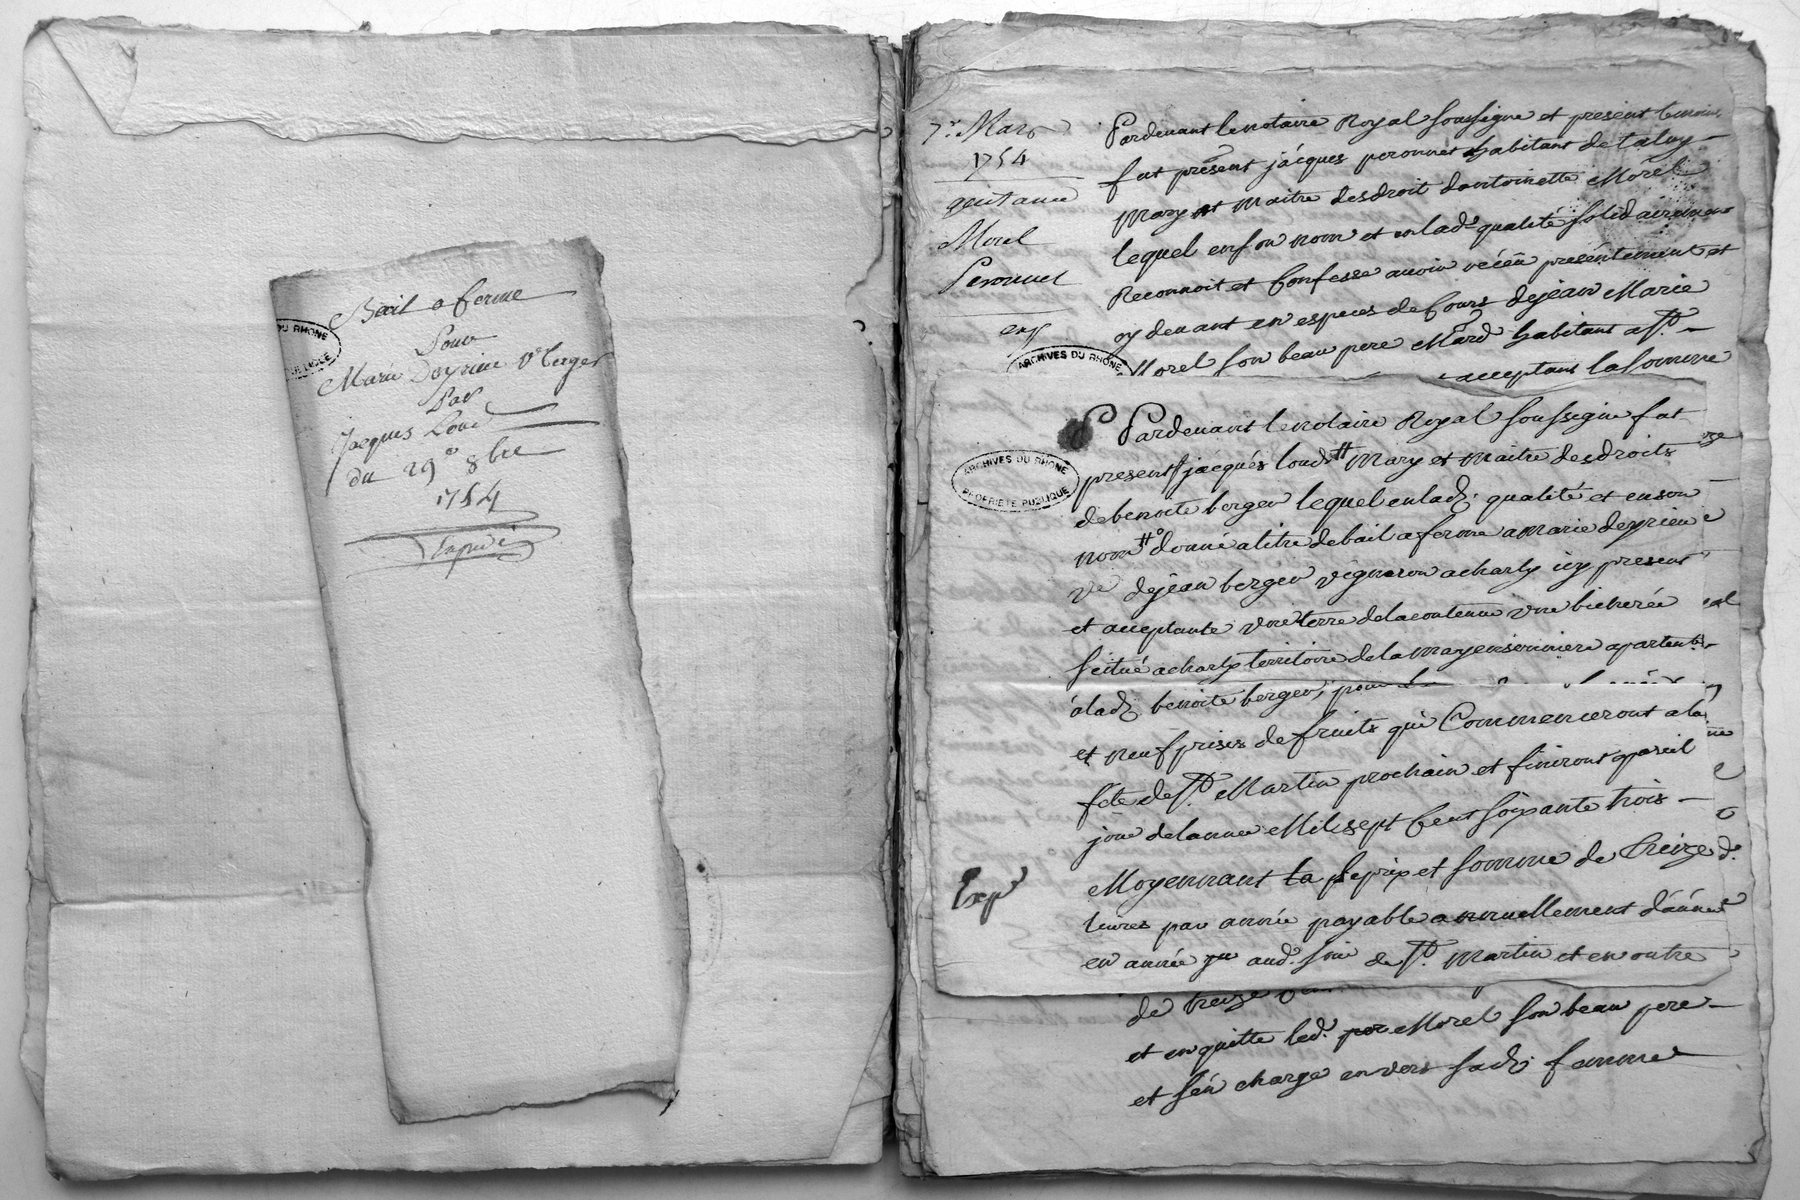 Bail a ferme
Pour
Marie Deyrieu Ve berger
Par
Jacques Loud
du 29e 8bre
1754
Expedié
DU RHÔNE
7e Mars
1754
quitance
Morel
Peronnet
exp
ARCHIVES DU RHÔNE
Pardevant le notaire Royal soussigne et present temoins
fut présent jacques peronnet habitant de taluy
Mary et Maitre des droit dantoinette Morel
lequel en son nom et en lade qualité solidairement
Reconnoit et Confesse avoir récéu présentement et
cy devant en especes de Cours de jean Marie
Morel son beau pere Mard habitant a St
acceptant la somme
Pardevant le notaire Royal soussigne fut
ARCHIVES DU RHÔNE
PROPRIÉTÉ PUBLIQUE
present jacques loud Mary et Maitre des droits
de benoite berger lequel en lade qualité et en son
nom donné a titre de bail a ferme a marie deyrieu
ve de jean berger vigneron a charly icy present
et acceptante une terre de la contenue d'une bicherée
scitué a charly territoire de la apartente
a lade benoite berger, pour
et neuf prises de fruits qui Commenceront a la
fête de St Martin prochain et finiront a pareil
jour de lannée Mil sept Cent soixante trois
Moyennant le prix et somme de treize
Exp
livres par année payable annuellement d'année
en année jour de St Martin et en outre
de treize
et en quitte led. Morel son beau pere
et s'en charge envers sade femme